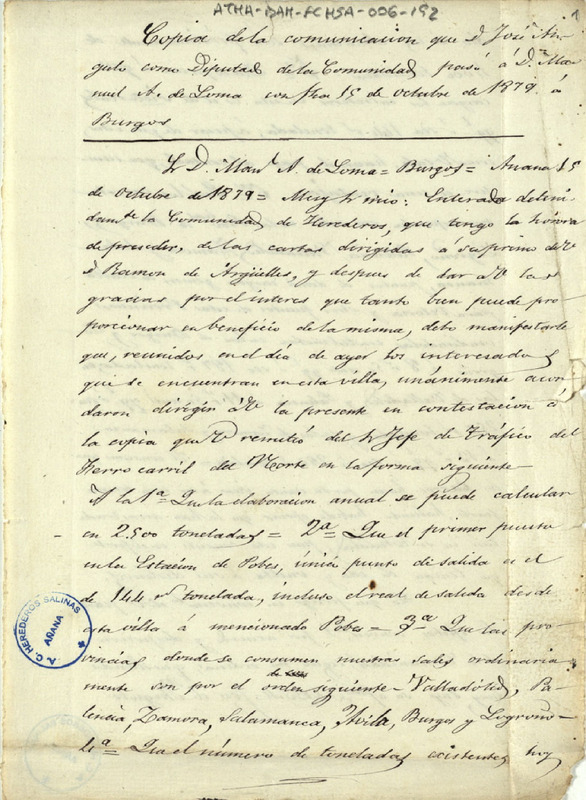 ATHA-DAH-FCHSA-006-192
1
Copia de la comunicacion que D. José An-
gulo como Diputado de la Comunidad pasó á Dn. Ma-
nuel A. de Loma con fha 15 de octubre de 1879 á
Burgos
Sr D. Manl. A. de Loma = Burgos = Anana 15
de octubre de 1879 = Muy Sr mio: Enterada deteni
damte la Comunidad de Herederos, que tengo la honra
de presider, de las cartas dirigidas á su primo de V
D Ramon de Argüelles, y despues de dar á V las
gracias por el interes que tanto bien puede pro-
porcionar en beneficio de la misma, debo manifestarle
que, reunidos en el día de ayer los interesados
que se encuentran en esta villa, unánimente acor
daron dirigir á V la presente en contestacion á
la copia que V remitió del Sr Jefe de Tráfico del
Ferro carril del Norte en la forma siguiente
A la 1ª Que la elaboracion anual se puede calcular
en 2.500 toneladas = 2ª Que el primer punto
en la Estacion de Pobes, único punto de salida es el
de 144 rs tonelada, incluso el real de salida desde
esta villa á mencionado Pobes = 3ª Que las pro-
vincias donde se consumen nuestras sales ordinaria
mente son por el orden siguiente - Valladolid, Pa-
lencia, Zamora, Salamanca, Avila, Burgos y Logroño -
4ª = Que el número de toneladas existentes hoy
A.C. HEREDEROS SALINAS
AÑANA